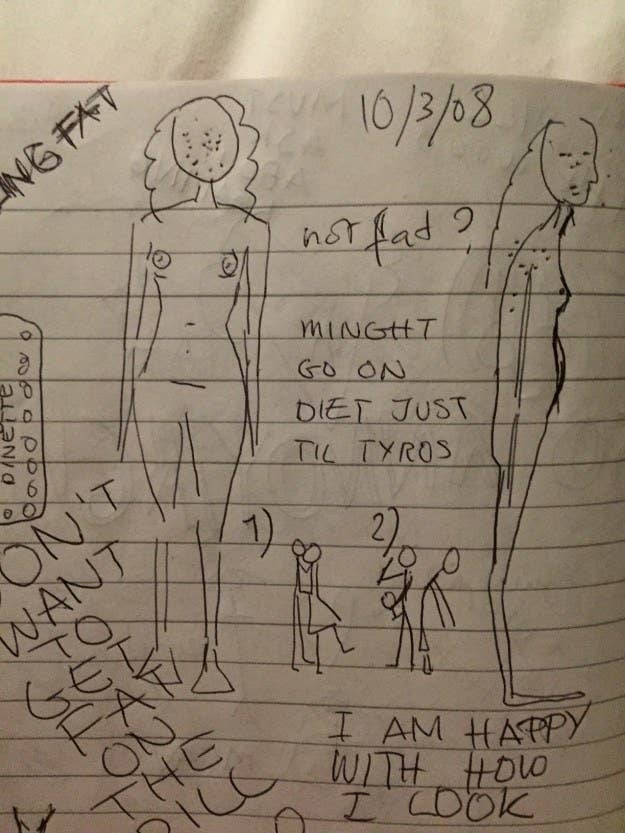 ING FAT
10/3/08
not fad?
MINGHT
GO ON
DIET JUST
TIL TYROS
DINETTE
1)
2)
ON'T
WANT
TO
GET
FAT
ON
THE
PILL
I AM HAPPY
WITH HOW
I LOOK